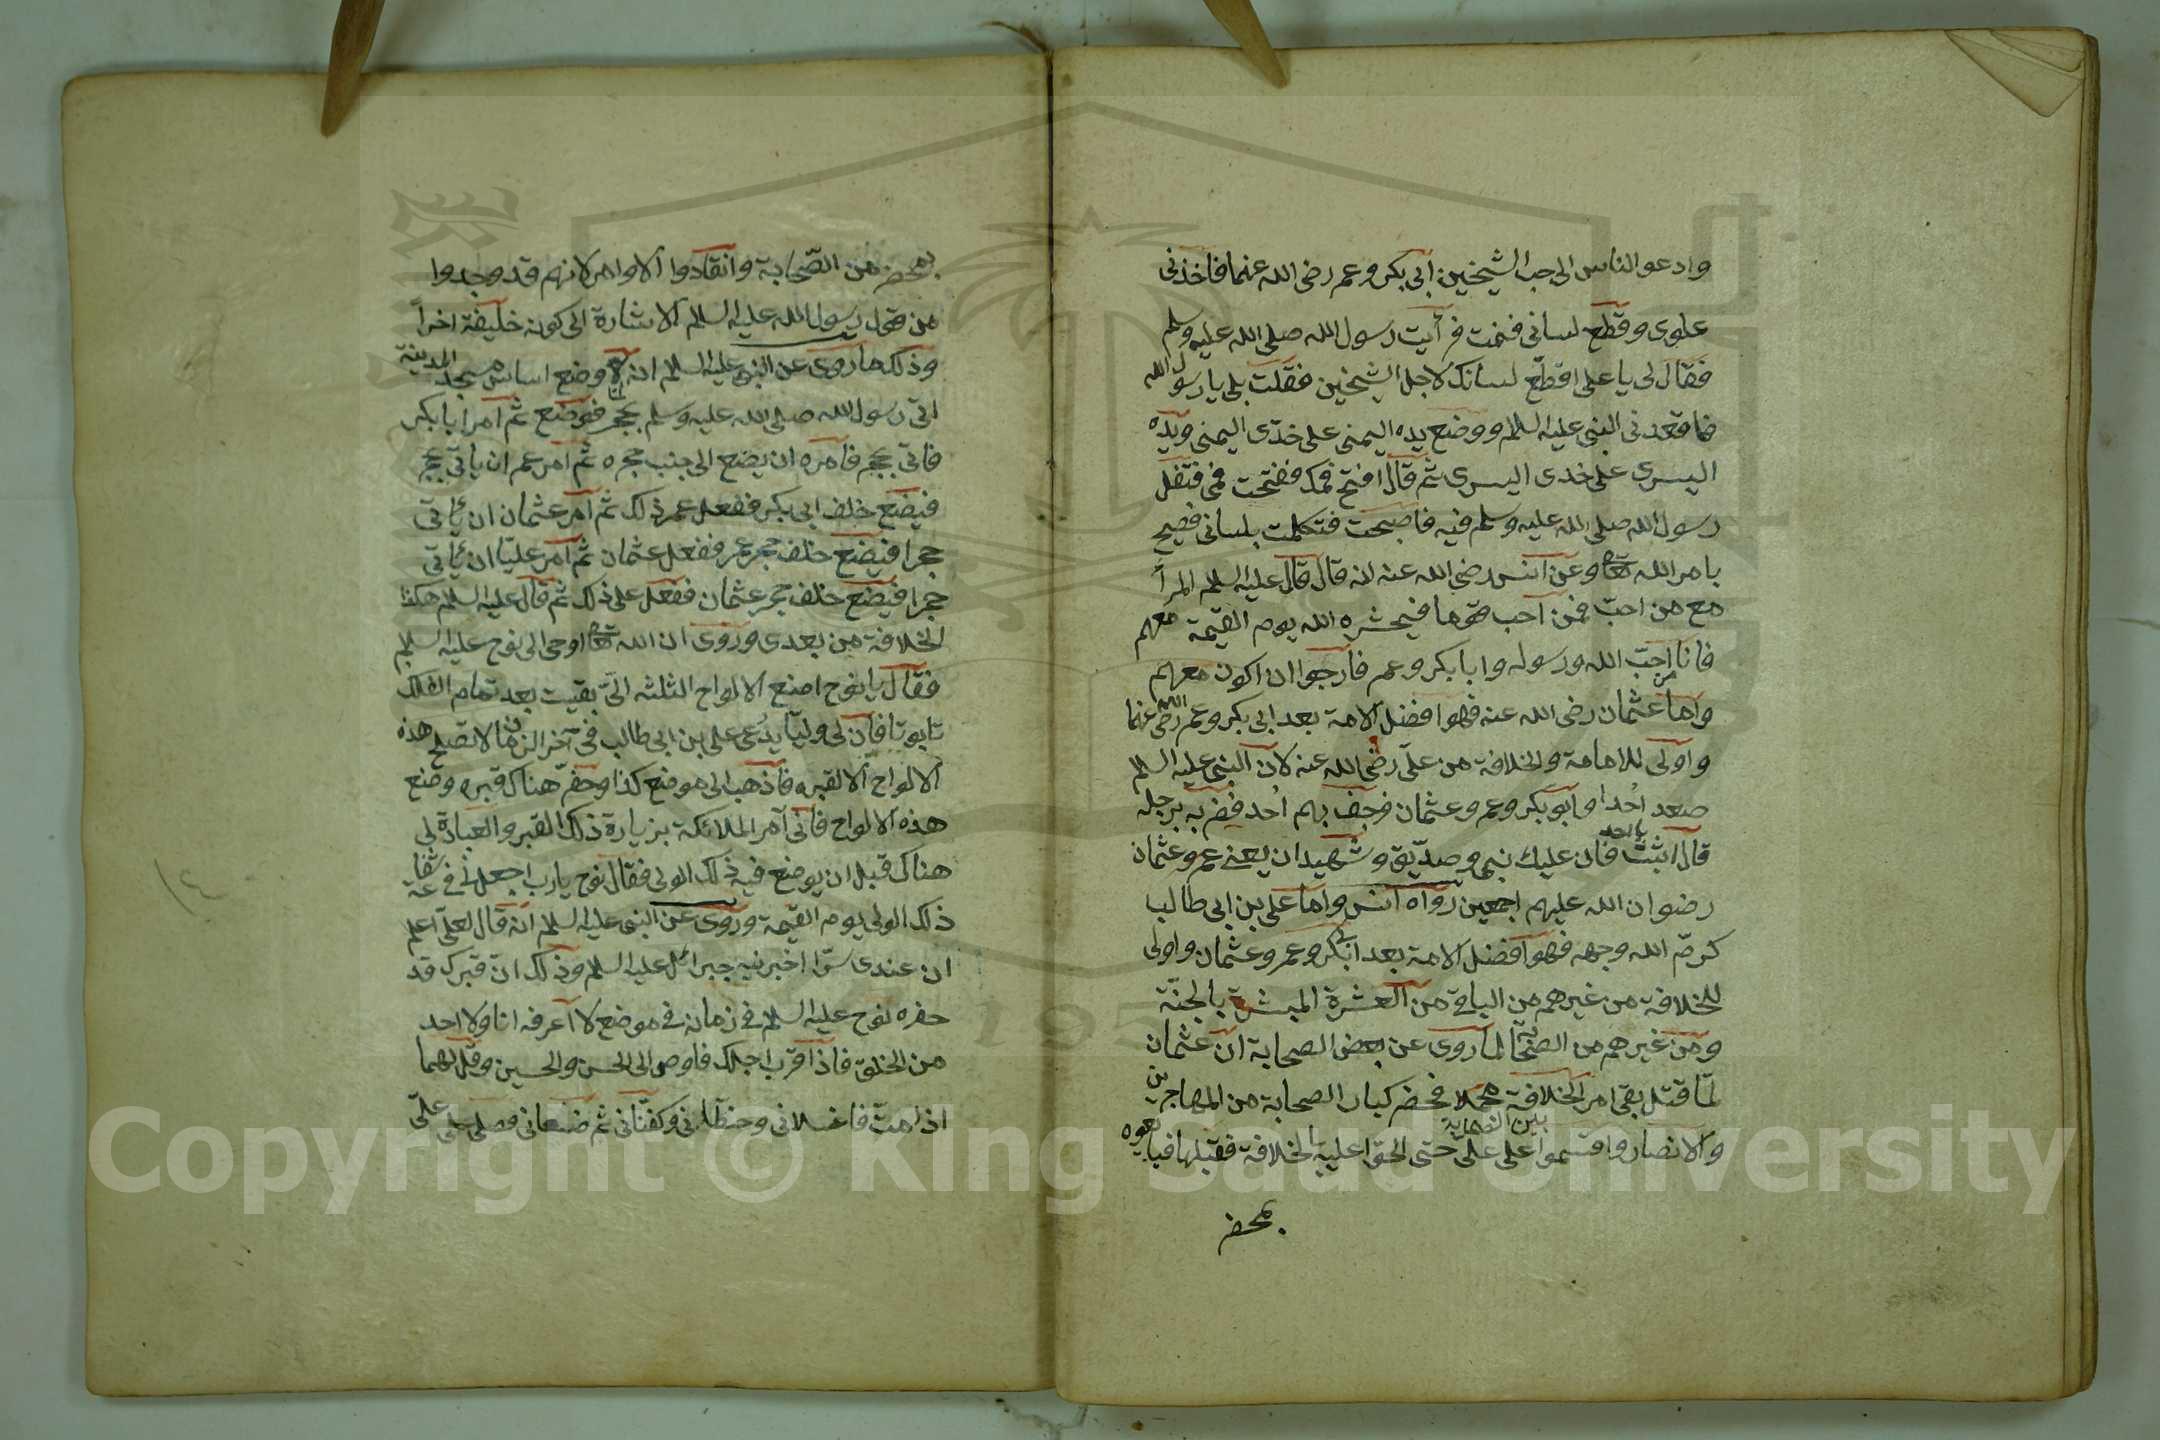 وادعو الناس الى حب الشيخين ابى بكر وعمر رضى الله عنهما فاخذنى
علوى وقطع لسانى فنمت فرأيت رسول الله صلى الله عليه وسلم
فقال لى يا على اقطع لسانك لاجل الشيخين فقلت بلى يا رسول الله
فاقعدنى النبى عليه السلام ووضع يده اليمنى على خدى اليمنى ويده
اليسرى على خدى اليسرى ثم قال افتح فمك ففتحت فمى فتفل
رسول الله صلى الله عليه وسلم فيه فاصبحت فتكلمت بلسانى فصيح
بامر الله تعا وعن انس رضى الله عنه انه قال قال عليه السلام المرأ
مع من احب فمن احب قوما فيحشره الله يوم القيمة معهم
فانا احب الله ورسوله وابا بكر وعمر فارجوا ان اكون معهم
واما عثمان رضى الله عنه فهو افضل الامة بعد ابى بكر وعمر رضى الله عنهما
واولى للامامة والخلافة من على رضى الله عنه لان النبى عليه السلام
صعد اُحدا وابو بكر وعمر وعثمان فرجف بهم اُحد فضربه برجله
قال اثبت يا احد فان عليك نبى وصديق وشهيدان يعنى عمر وعثمان
رضوان الله عليهم اجمعين رواه انس واما على بن ابى طالب
كرم الله وجهه فهو افضل الامة بعد ابى بكر وعمر وعثمان واولى
للخلافة من غيرهم من الباقى من العشرة المبشرة بالجنة
ومن غيرهم من الصحابة لما روى عن بعض الصحابة ان عثمان
لما قتل بقى امر الخلافة مهملا فحضر كبار الصحابة من المهاجرين
والانصار واقسموا على على بين الصحابة حتى الحوا عليه بالخلافة فقبلها فبايعوه
بمحضر
بمحضر من الصحابة وانقادوا الاوامر لانهم قد وجدوا
من قول رسول الله عليه السلام الاشارة الى كونه خليفة اخرا
وذلك ما روى عن النبى عليه السلام انه لما وضع اساس مسجد المدينة
اتى رسول الله صلى الله عليه وسلم بحجر فوضع ثم امر ابا بكر
فاتى بحجر فامره ان يضع الى جنب حجره ثم امر عمر ان ياتى بحجر
فيضع خلف ابى بكر ففعل عمر ذلك ثم امر عثمان ان يأتى
حجرا فيضع خلف حجر عمر ففعل عثمان ثم امر عليا ان يأتى
حجرا فيضع خلف حجر عثمان ففعل على ذلك ثم قال عليه السلام هكذا
الخلافة من بعدى وروى ان الله تعا اوحى الى نوح عليه السلام
فقال يا نوح اصنع الالواح الثلثة التى بقيت بعد تمام الفلك
تابوتا فان لى وليا يدعى على بن ابى طالب فى آخر الزمان لا تصلح هذه
الالواح الا لقبره فاذهب الى موضع كذا وحفر هناك قبره وضع
هذه الالواح فانى آمر الملائكة بزيارة ذلك القبر والعبادة لى
هناك قبل ان يوضع فيه ذلك الولى فقال نوح يا رب اجعلنى فى شفاعة
ذلك الولى يوم القيمة وروى عن النبى عليه السلام انه قال لعلى اعلم
ان عندى سرا اخبرنيه جبرائل عليه السلام وذلك ان قبرك قد
حفره نوح عليه السلام فى زمانه فى موضع لا اعرفه انا ولا احد
من الخلق فاذا قرب اجلك فاوص الى الحسن والحسين وقل لهما
اذا مت فاغسلانى وحنطانى وكفنانى ثم ضعانى وصلى على علىّ
Copyright © King Saud University